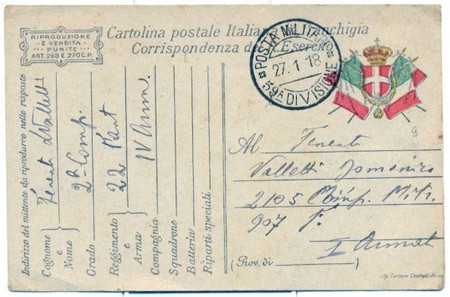 RIPRODUZIONE
E VENDITA
PUNITE
ART. 285 E 270 C.P.
Cartolina postale Italiana in franchigia
Corrispondenza del R. Esercito
POSTA MILITARE
27.1.18
59A DIVISIONE
Indirizzo del mittente da riprodurre nelle risposte
Cognome e Nome
Tenente Valletti
Grado
2ª Comp.
Reggimento e Arma
22
Compagnia
IV
Squadrone
Batteria
Riparti speciali
Al Tenente
Valletti Domenico
2105 Comp. Mitr.
907 F.
I Armata
(Prov. di )